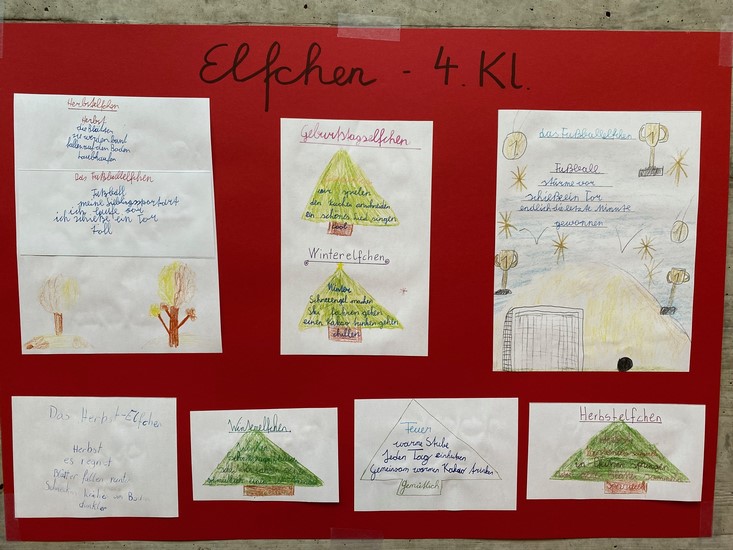 Elfchen - 4. Kl.
Herbstelfchen
Herbst
die Blätter
sie werden bunt
fallen auf den Boden
Laubhaufen
Das Fußballelfchen
Fußball
meine Lieblingssportart
ich laufe vor
ich schieße ein Tor
toll
Geburtstagselfchen
wir spielen
den Kuchen anschneiden
ein schönes Lied singen
cool
Winterelfchen
Winter
Schneeengel machen
Ski fahren gehen
einen Kakao trinken gehen
chillen
das Fußballelfchen
Fußball
stürme vor
schieße ein Tor
endlich die letzte Minute
gewonnen
1
1
1
1
1
Das Herbst-Elfchen
Herbst
es regnet
Blätter fallen runter
am Boden
dunkler
Winterelfchen
Feuer
warme Stube
Jeden Tag einheizen
Gemeinsam warmen Kakao trinken
gemütlich
Herbstelfchen